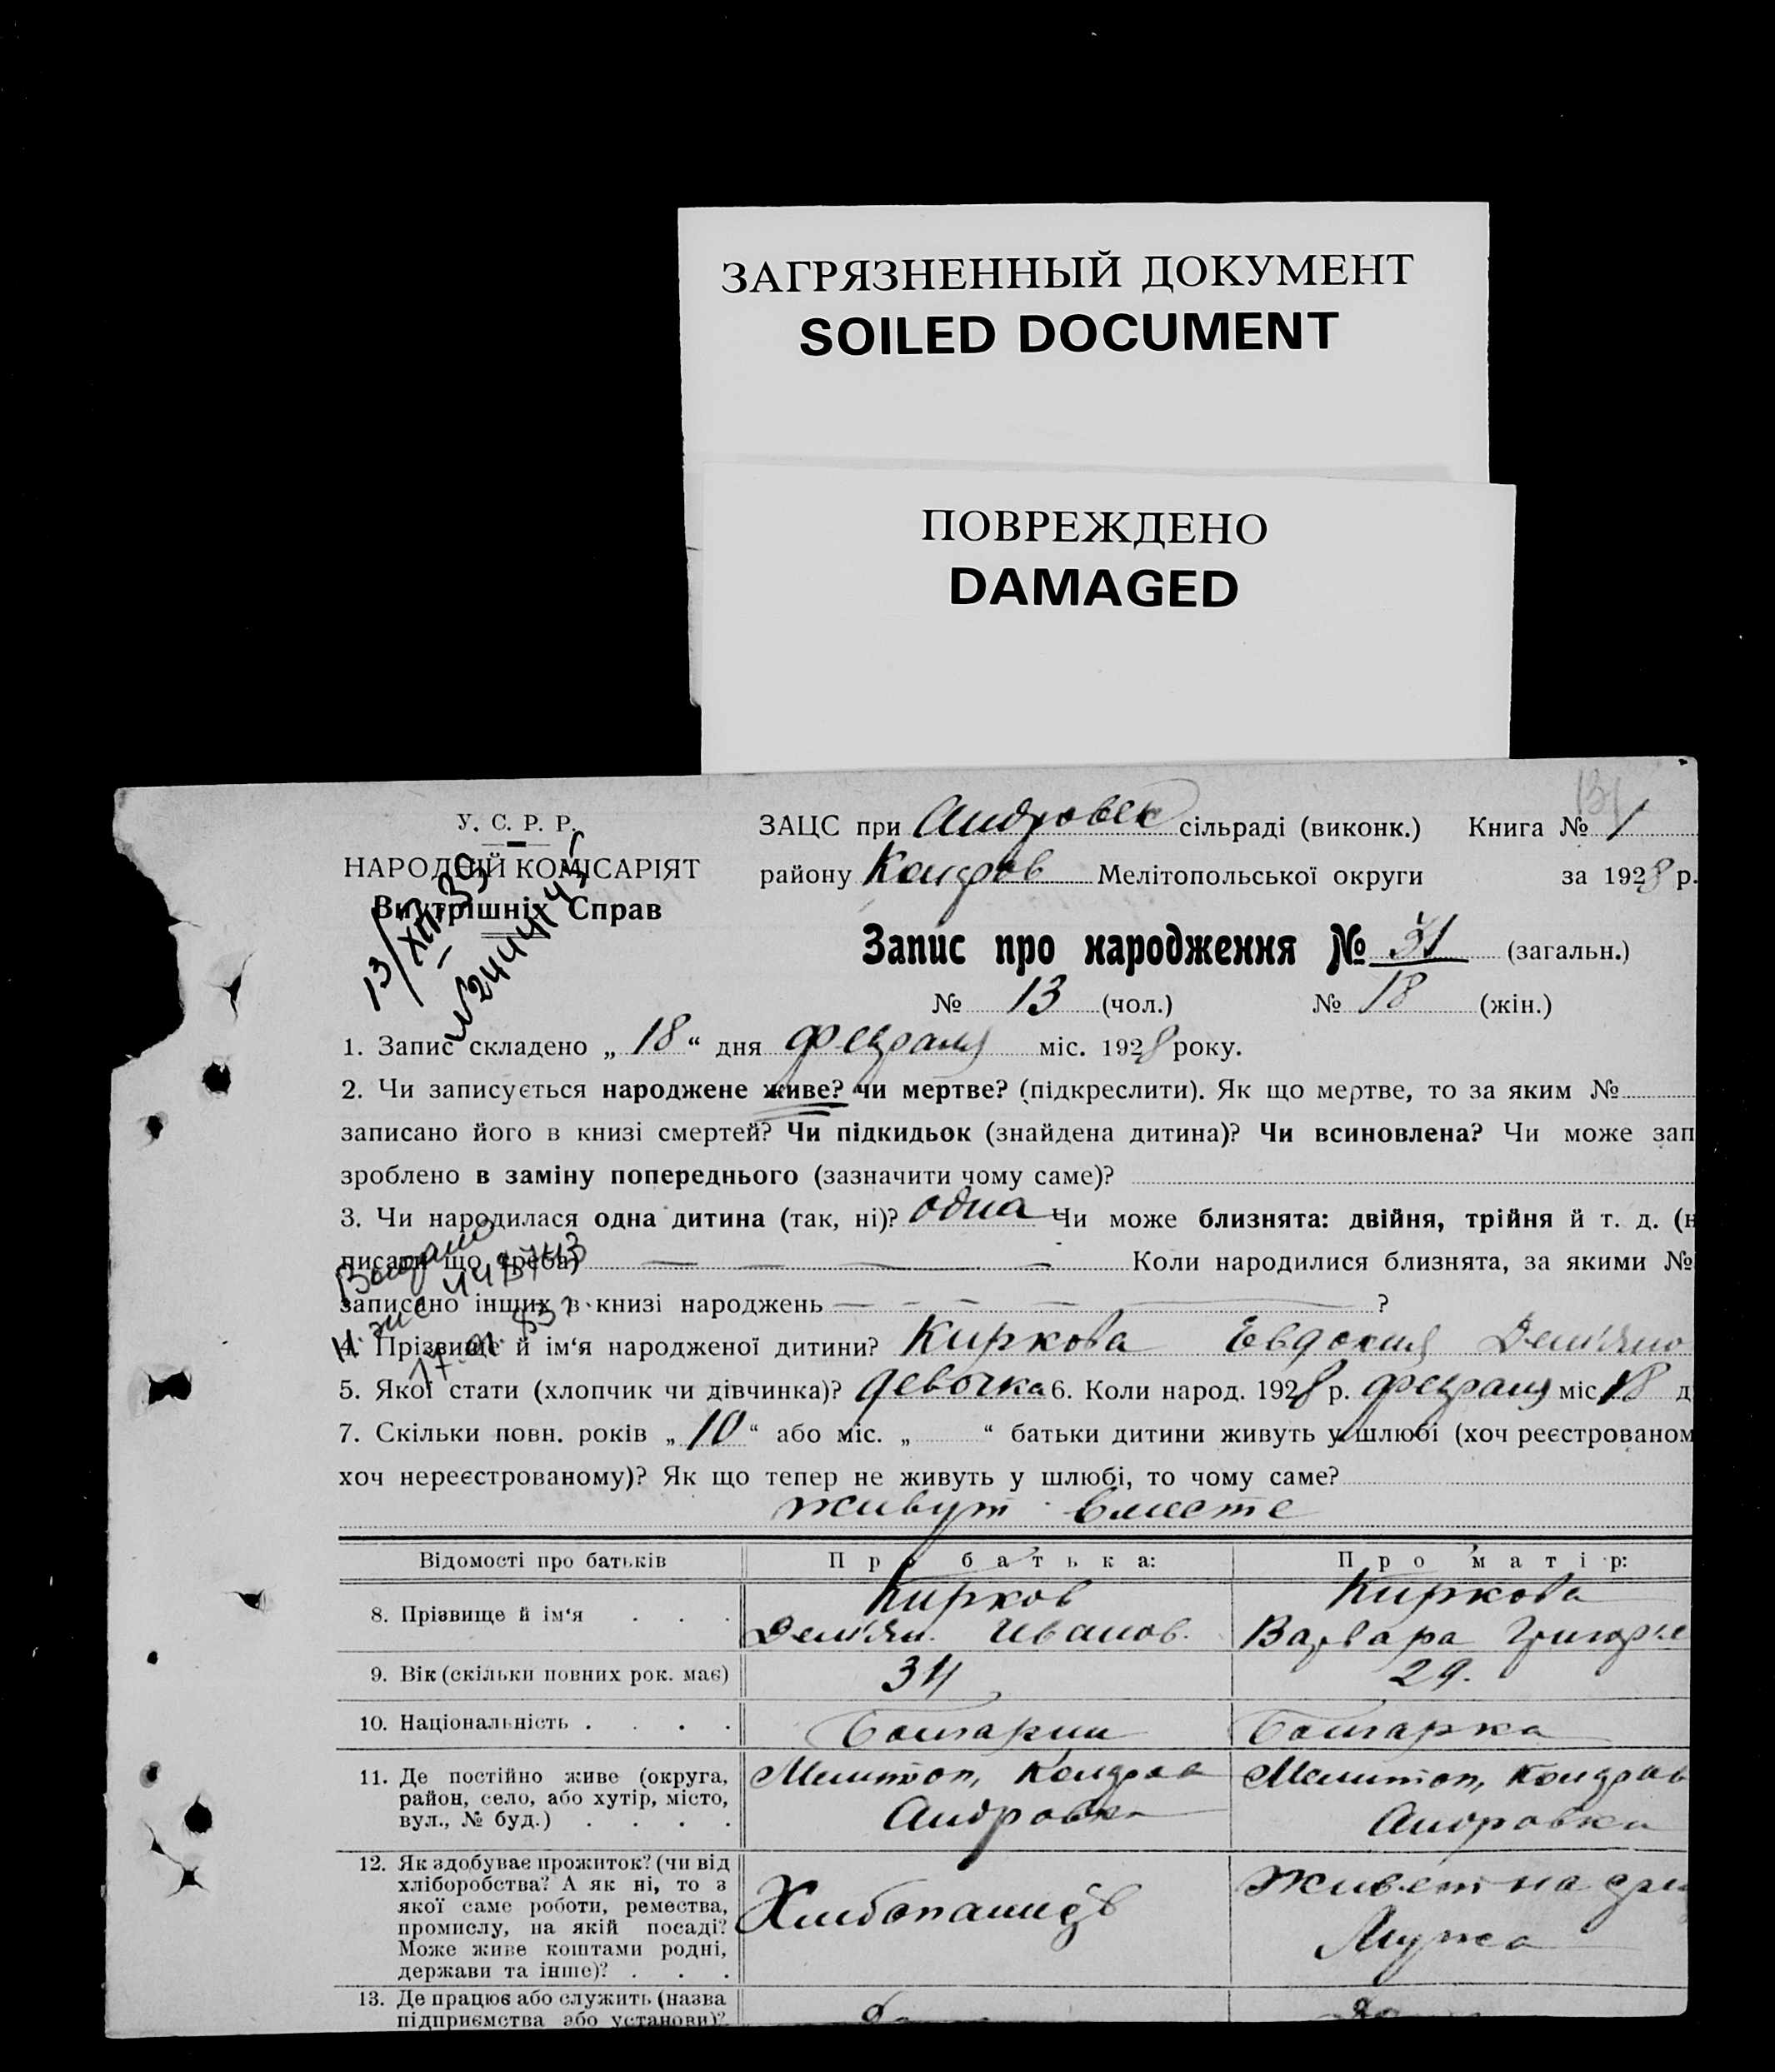 ЗАГРЯЗНЕННЫЙ ДОКУМЕНТ
SOILED DOCUMENT
ПОВРЕЖДЕНО
DAMAGED
131
У. С. Р. Р.
НАРОДНІЙ КОМІСАРІЯТ
Внутрішніх Справ
13/XII-39
ЗАЦС при Андровск сільраді (виконк.) Книга № 1
району Колгров Мелітопольської округи за 1928 р.
Запис про народження № 31 (загальн.)
№ 13 (чол.) № 18 (жін.)
1. Запис складено „ 18 “ дня февраля міс. 1928 року.
2. Чи записується народжене живе? чи мертве? (підкреслити). Як що мертве, то за яким №
записано його в книзі смертей? Чи підкидьок (знайдена дитина)? Чи всиновлена? Чи може зап
зроблено в заміну попереднього (зазначити чому саме)?
3. Чи народилася одна дитина (так, ні)? одна Чи може близнята: двійня, трійня й т. д. (н
писати що треба) — — — — Коли народилися близнята, за якими №
записано інших в книзі народжень — — — — — ?
4. Прізвище й ім‘я народженої дитини? Киркова Евдокия Демьяно
5. Якої стати (хлопчик чи дівчинка)? девочка 6. Коли народ. 1928 р. февраля міс. 18 д
7. Скільки повн. років „ 10 “ або міс. „ “ батьки дитини живуть у шлюбі (хоч реєстрованом
хоч нереєстрованому)? Як що тепер не живуть у шлюбі, то чому саме?
живут вместе
Відомості про батьків Про батька: Про матір:
8. Прізвище й ім‘я Кирков Демьян. Иванов. Киркова Варвара Григорье
9. Вік (скільки повних рок. має) 34 29.
10. Національність Болгарин Болгарка
11. Де постійно живе (округа, Мелитоп, Мелитоп,
район, село, або хутір, місто, Андровка Андровка
вул., № буд.)
12. Як здобуває прожиток? (чи від Живет на
хліборобства? А як ні, то з
якої саме роботи, ремества, Хлибопашедв
промислу, на якій посаді? Мужа
Може живе коштами родні,
держави та інше)?
13. Де працює або служить (назва
підприємства або установи)?